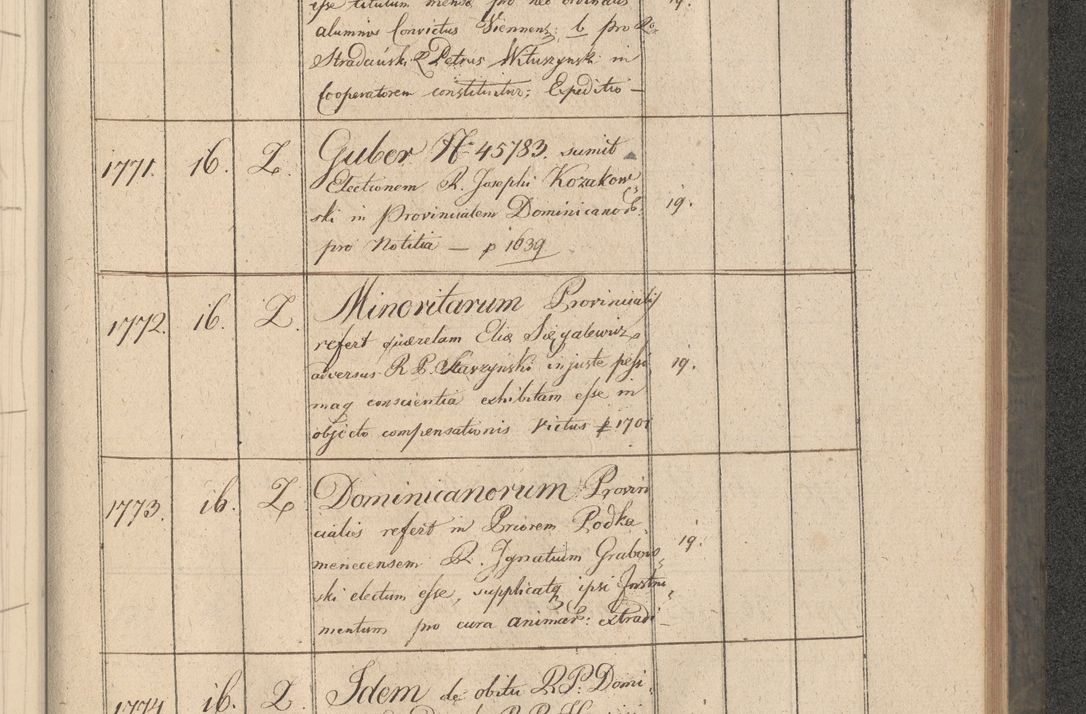 esse titulum mensæ pro neo ordinatis 19.
alumnis Convictus Viennens: b pro R.
Stradański R Petrus Wituszynski in
Cooperatorem constituitur; Expeditio —
1771. 16. Z. Guber № 45783. sumit
Electionem R. Josephi Kozakow
ski in Provincialem Dominicanor: 19.
pro Notitia — p 1639
1772. 16. Z. Minoritarum Provincialis
refert quærelam Eliæ
adversus R. P. injuste pessi 19.
maq conscientia exhibitam esse in
objecto compensationis Victus p 1701
1773. 16. Z. Dominicanorum Provin
cialis refert in Priorem Podka
menecensem R. Ignatium Grabow 19.
ski electum esse, supplicatq ipsi Instru
mentum pro cura animar: extradi —
1774 16. Z. Idem de obitu R. P. Domi